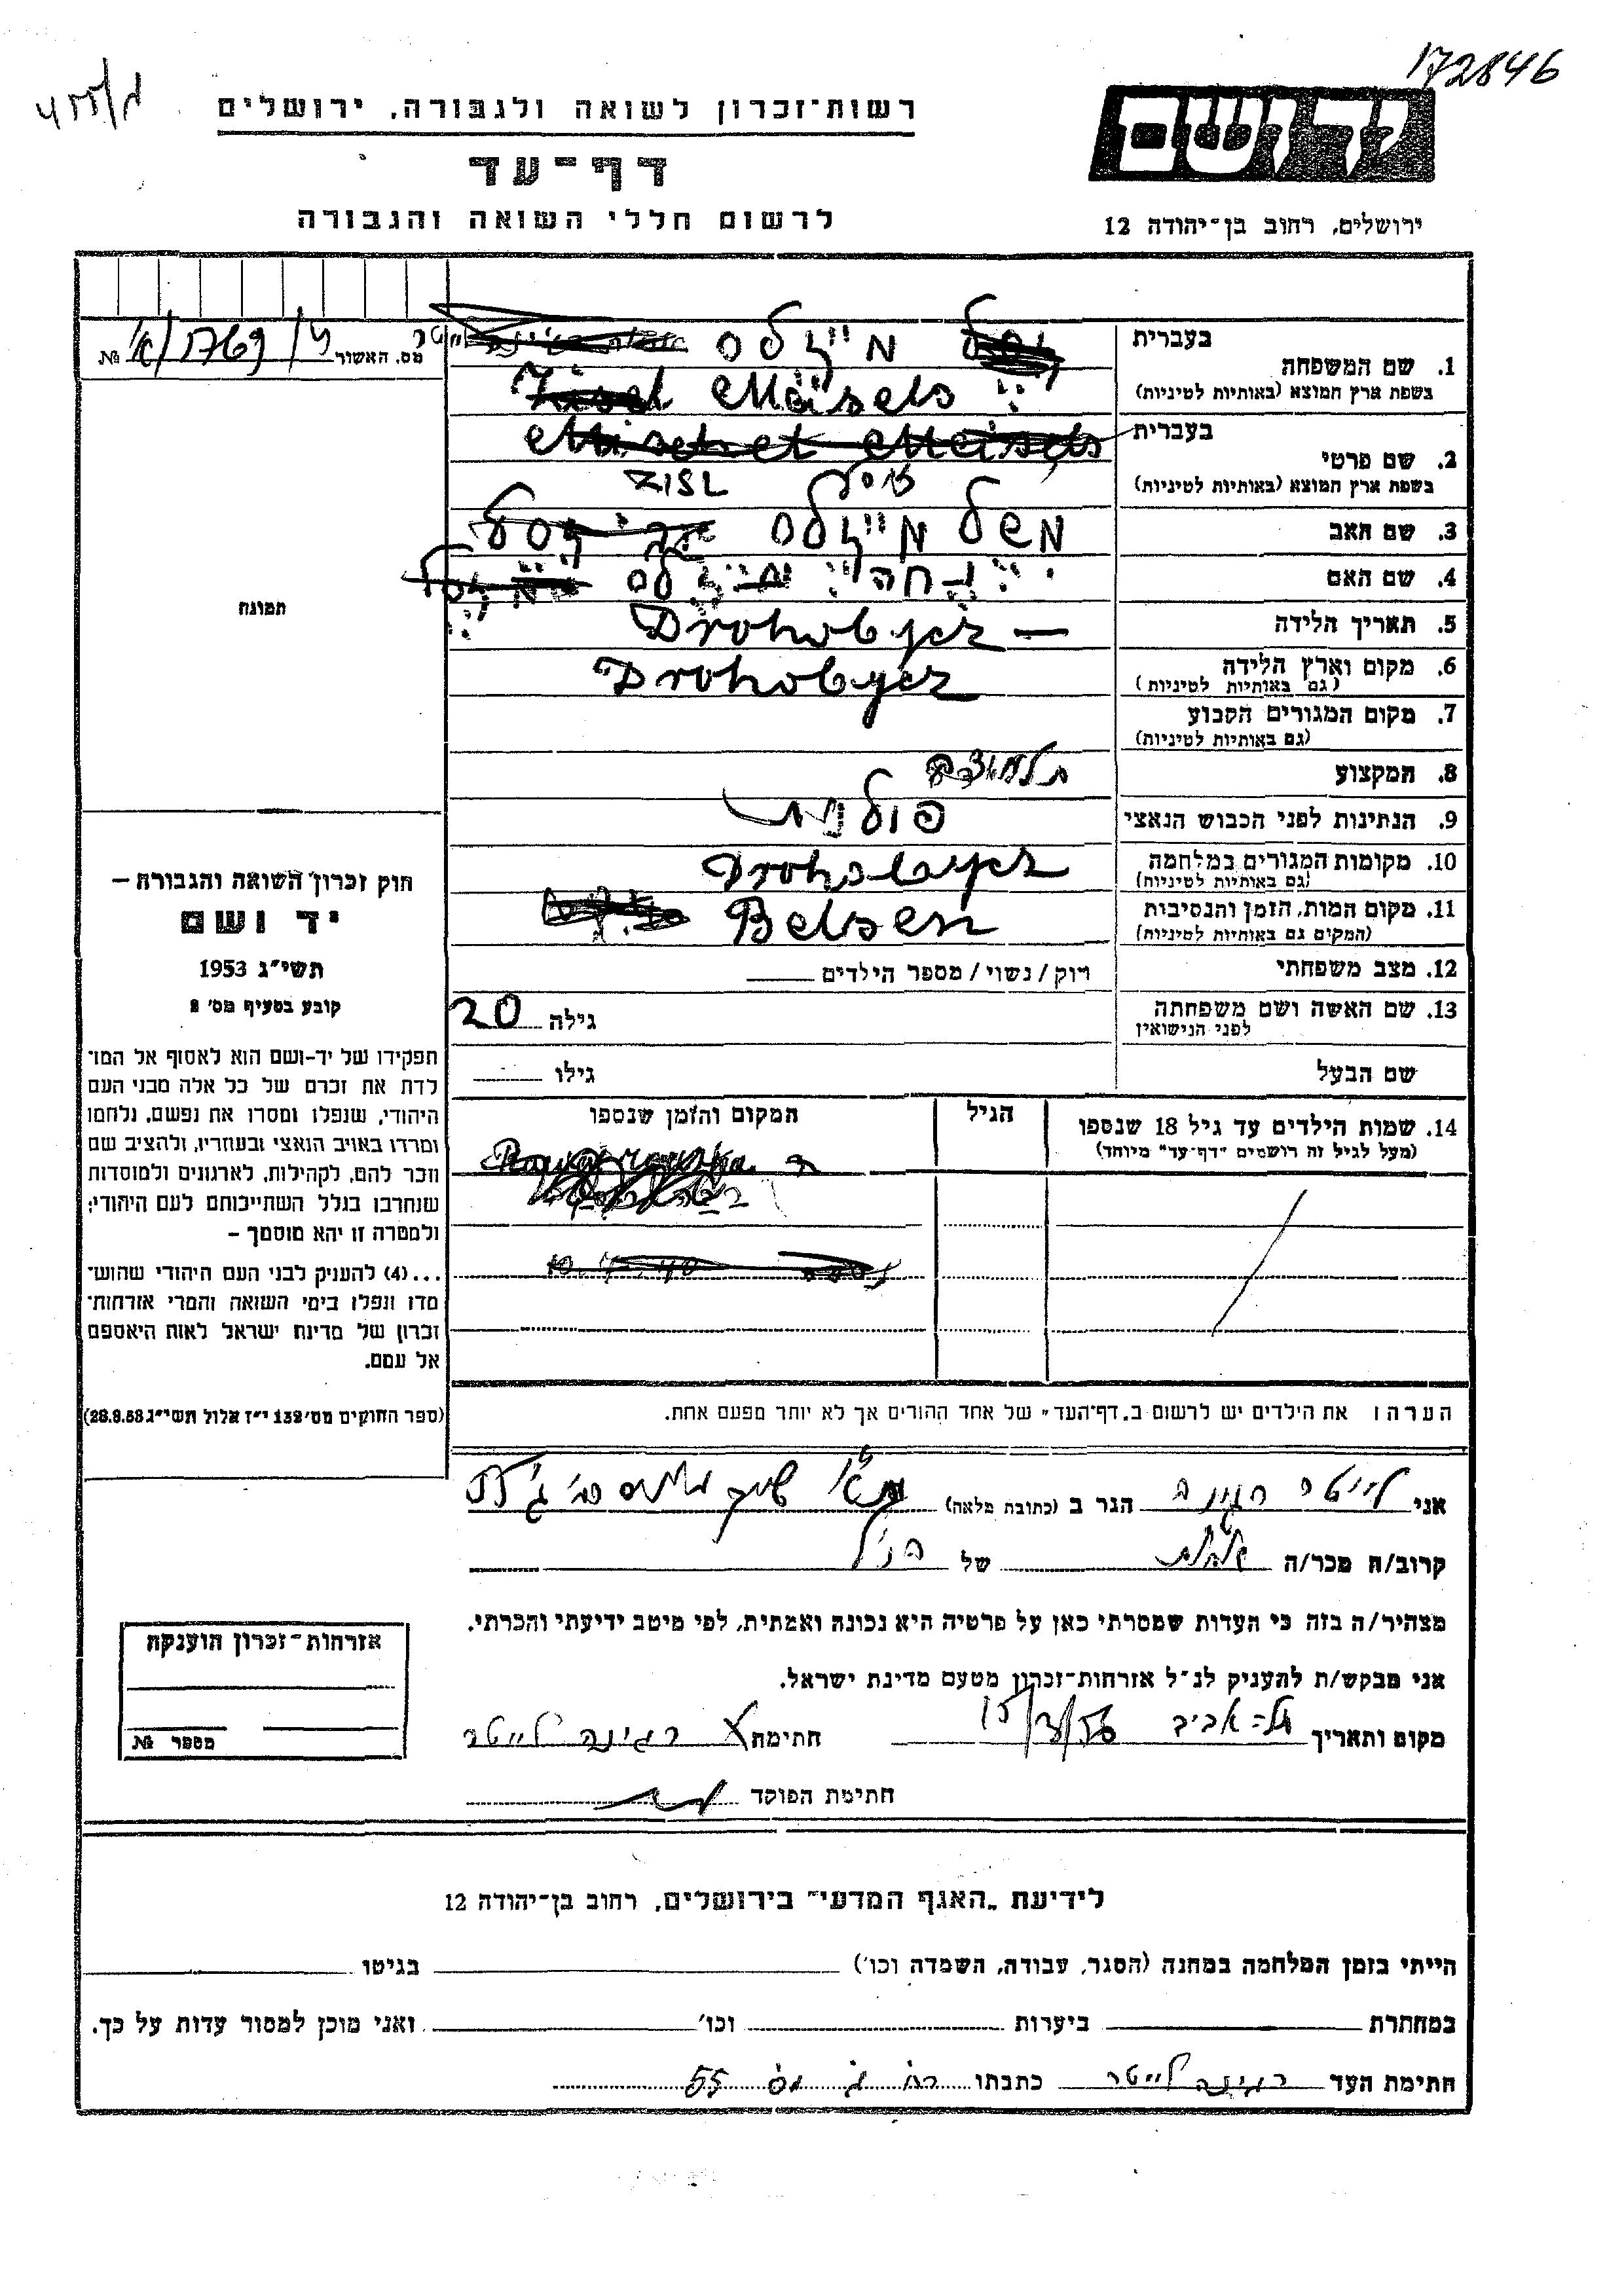 172846
רשות-זכרון לשואה ולגבורה, ירושלים
ידושם
דף-עד
לרשום חללי השואה והגבורה
ירושלים, רחוב בן-יהודה 12
מס. האשור
№
בעברית
1. שם המשפחה
מייזלס
(בשפת ארץ המוצא (באותיות לטיניות
Meisels
בעברית
2. שם פרטי
(בשפת ארץ המוצא (באותיות לטיניות
ZISL זיסל
3. שם האב
משל מייזלס
4. שם האם
5. תאריך הלידה
Drohobycz —
6. מקום וארץ הלידה
(גם באותיות לטיניות)
Drohobycz
7. מקום המגורים הקבוע
(גם באותיות לטיניות)
8. המקצוע
9. הנתינות לפני הכבוש הנאצי
פולנית
10. מקומות המגורים במלחמה
(גם באותיות לטיניות)
Drohobycz
11. מקום המות, הזמן והנסיבות
(המקום גם באותיות לטיניות)
Belsen
12. מצב משפחתי
רוק/נשוי/מספר הילדים
13. שם האשה ושם משפחתה
לפני הנישואין
גילה 20
שם הבעל
גילו
14. שמות הילדים עד גיל 18 שנספו
(מעל לגיל זה רושמים "דף-עד" מיוחד)
הגיל
המקום והזמן שנספו
תמונה
חוק זכרון השואה והגבורה –
יד ושם
תשי"ג 1953
קובע בסעיף מס' 2
תפקידו של יד-ושם הוא לאסוף אל המו־
לדת את זכרם של כל אלה מבני העם
היהודי, שנפלו ומסרו את נפשם, נלחמו
ומרדו באויב הנאצי ובעוזריו, ולהציב שם
וזכר להם, לקהילות, לארגונים ולמוסדות
שנחרבו בגלל השתייכותם לעם היהודי;
ולמטרה זו יהא מוסמך –
...(4) להעניק לבני העם היהודי שהוש־
מדו ונפלו בימי השואה והמרי אזרחות־
זכרון של מדינת ישראל לאות היאספם
אל עמם.
(ספר החוקים מס' 132 י"ז אלול תשי"ג 28.8.53)
הערה: את הילדים יש לרשום ב"דף-העד" של אחד ההורים אך לא יותר מפעם אחת.
אני לייטר רגינה הגר ב (כתובת מלאה)
קרוב/ה מכר/ה של הנ"ל
מצהיר/ה בזה כי העדות שמסרתי כאן על פרטיה היא נכונה ואמתית, לפי מיטב ידיעתי והכרתי.
אני מבקש/ת להעניק לנ"ל אזרחות-זכרון מטעם מדינת ישראל.
מקום ותאריך תל-אביב 15/3/56 חתימה רגינה לייטר
חתימת הפוקד
אזרחות-זכרון הוענקה
מספר №
לידיעת "האגף המדעי" בירושלים, רחוב בן-יהודה 12
הייתי בזמן המלחמה במחנה (הסגר, עבודה, השמדה וכו') בגיטו
במחתרת ביערות וכו' ואני מוכן למסור עדות על כך.
חתימת העד רגינה לייטר כתבתו 55